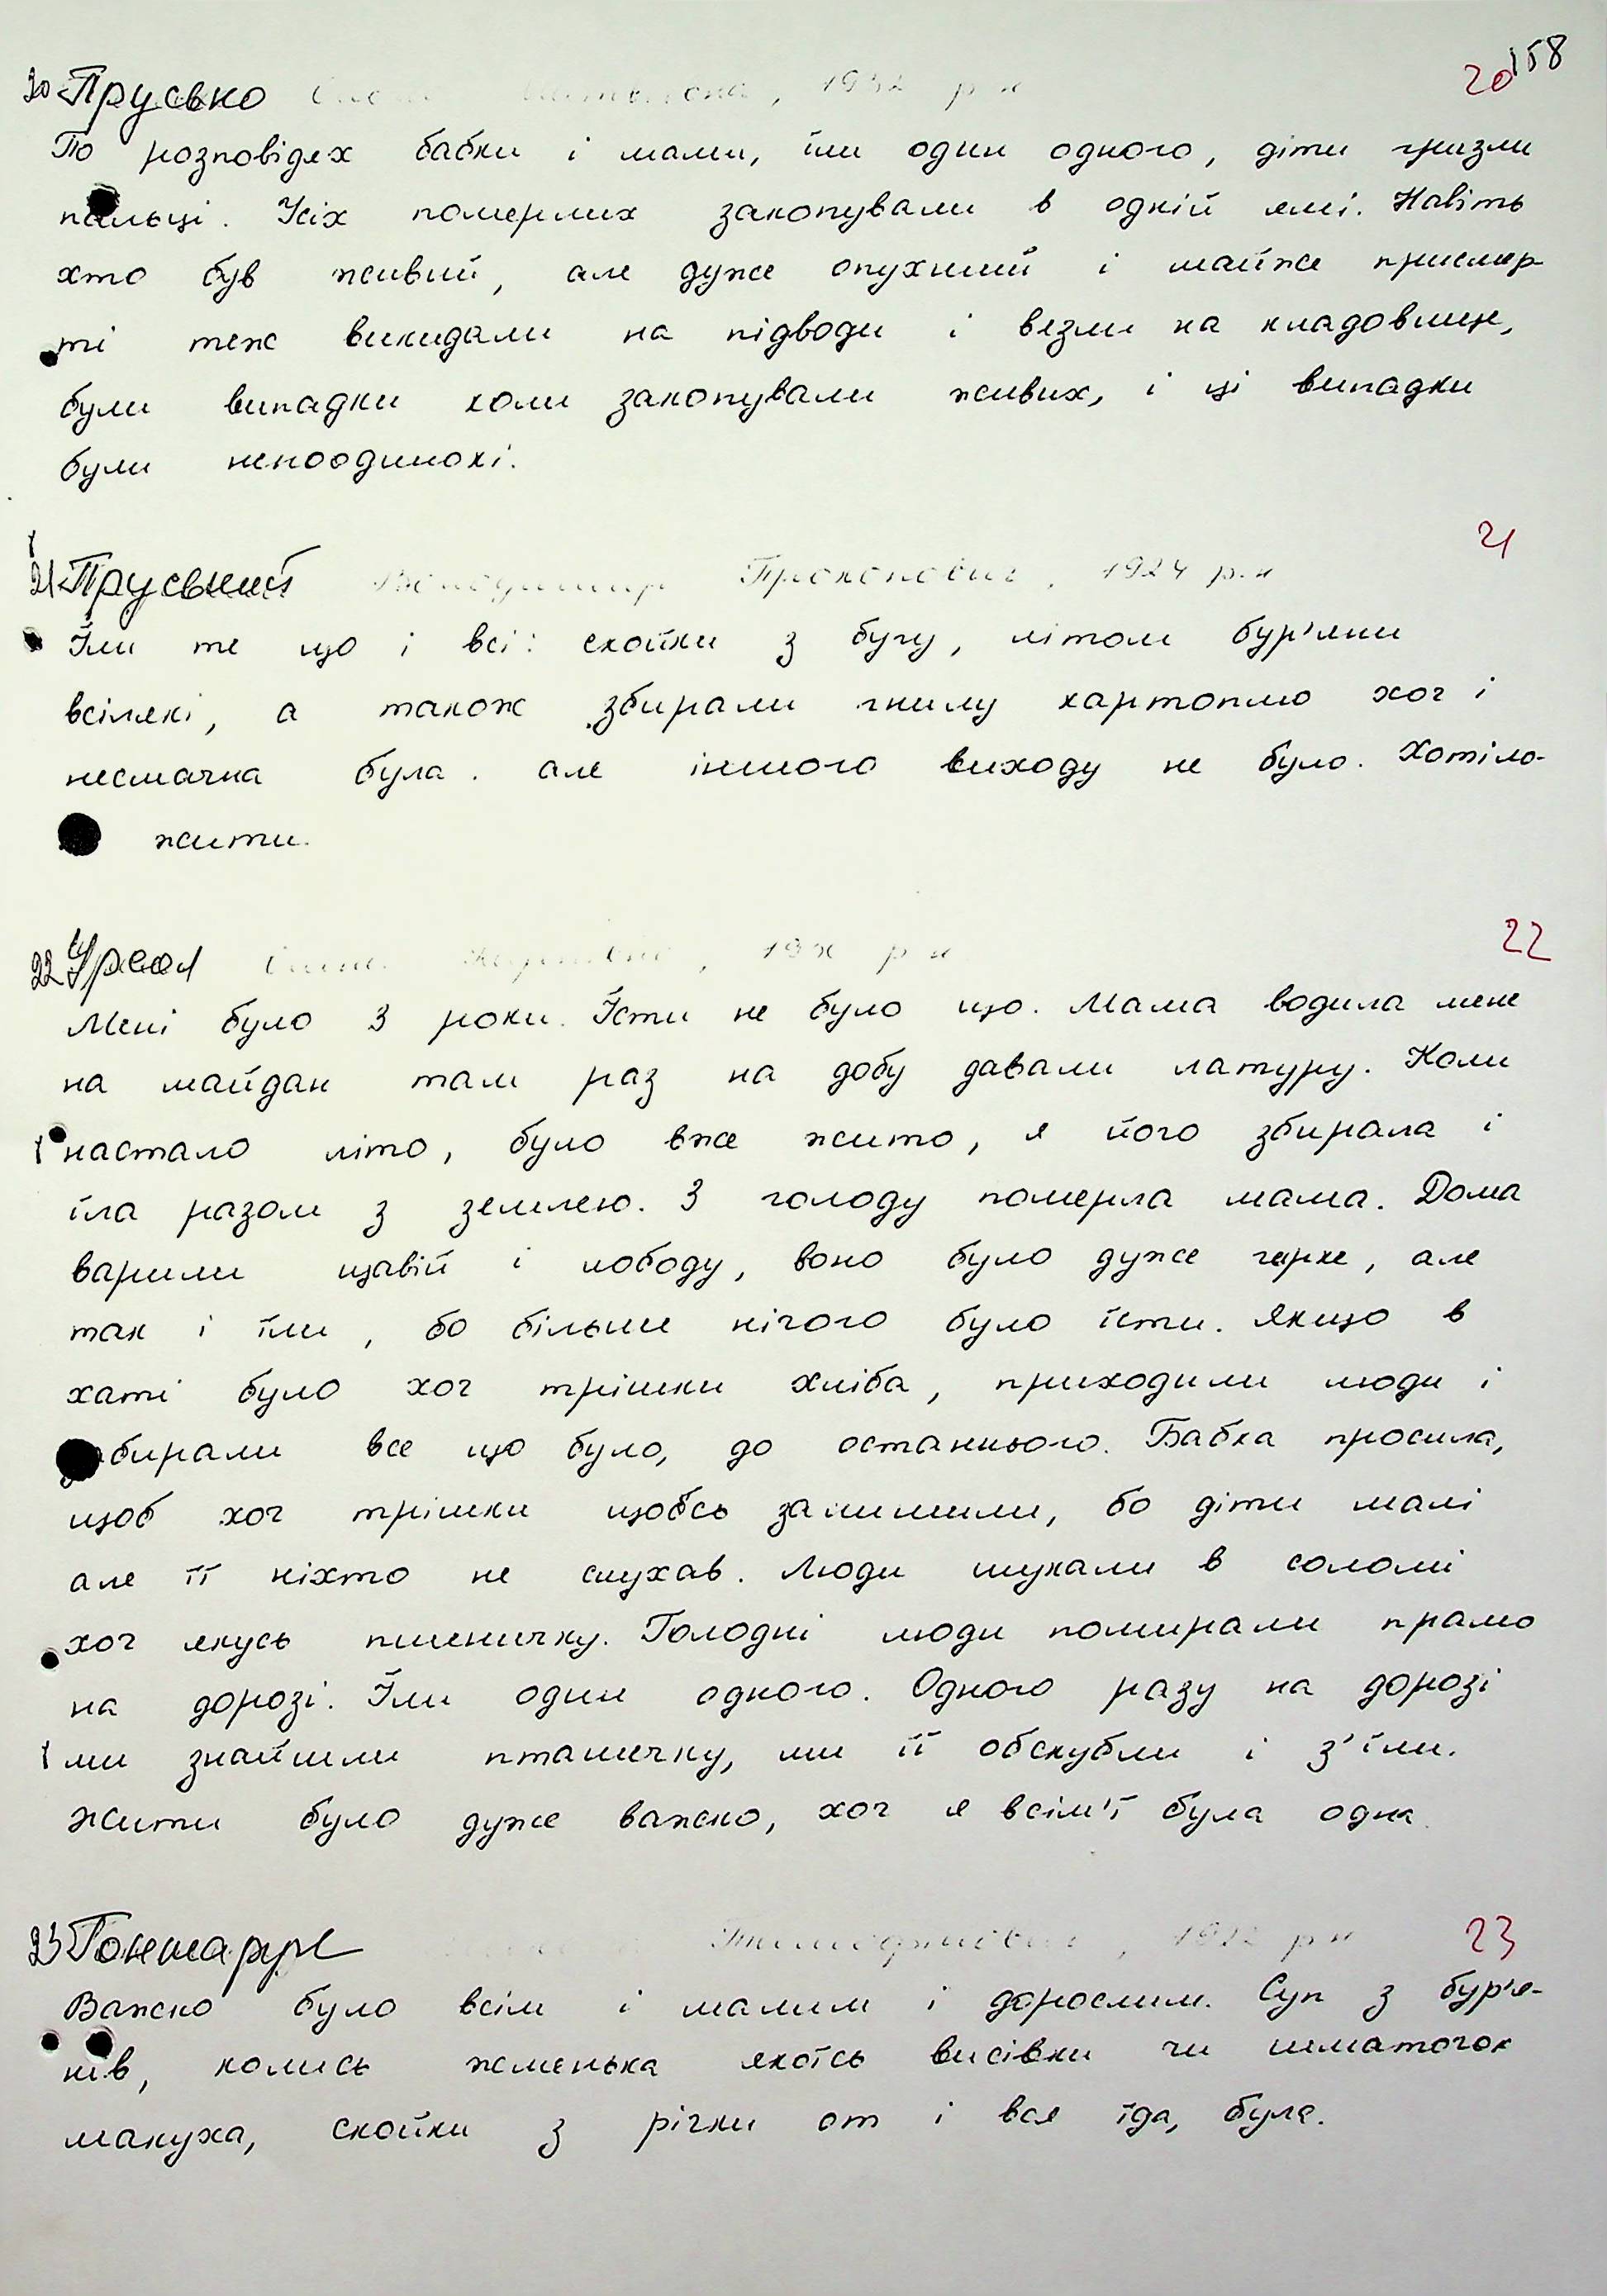 158
20
20 Прусько 1932 р н
По розповідях бабки і мами, їли один одного, діти гризли
пальці. Усіх померлих закопували в одній ямі. Навіть
хто був живий, але дуже опухший і майже присмер
ті теж викидали на підводи і везли на кладовище,
були випадки коли закопували живих, і ці випадки
були непоодинокі.
21
21 Володимир Прокопович, 1924 р.н
Їли те що і всі: скойки з бугу, літом бур'яни
всілякі, а також збирали гнилу картоплю хоч і
несмачна була. але іншого виходу не було. Хотіло-
жити.
22
22 р н
Мені було 3 роки. Їсти не було що. Мама водила мене
на майдан там раз на добу давали латуру. Коли
настало літо, було вже жито, я його збирала і
їла разом з землею. З голоду померла мама. Дома
варили щавій і лободу, воно було дуже гірке, але
так і їли, бо більше нічого було їсти. Якщо в
хаті було хоч трішки хліба, приходили люди і
забирали все що було, до останнього. Бабка просила,
щоб хоч трішки щобсь залишили, бо діти малі
але її ніхто не слухав. Люди шукали в соломі
хоч якусь пшеничку. Голодні люди помирали прамо
на дорозі. Їли один одного. Одного разу на дорозі
ми знайшли пташичку, ми її обскубли і з'їли.
Жити було дуже важко, хоч я всім'ї була одна.
23
23 Гончарук Тимофійович, р н
Важко було всім і малим і дорослим. Суп з бур'я-
нів, колись жменька якоїсь висівки чи шматочок
макуха, скойки з річки от і вся їда, була.